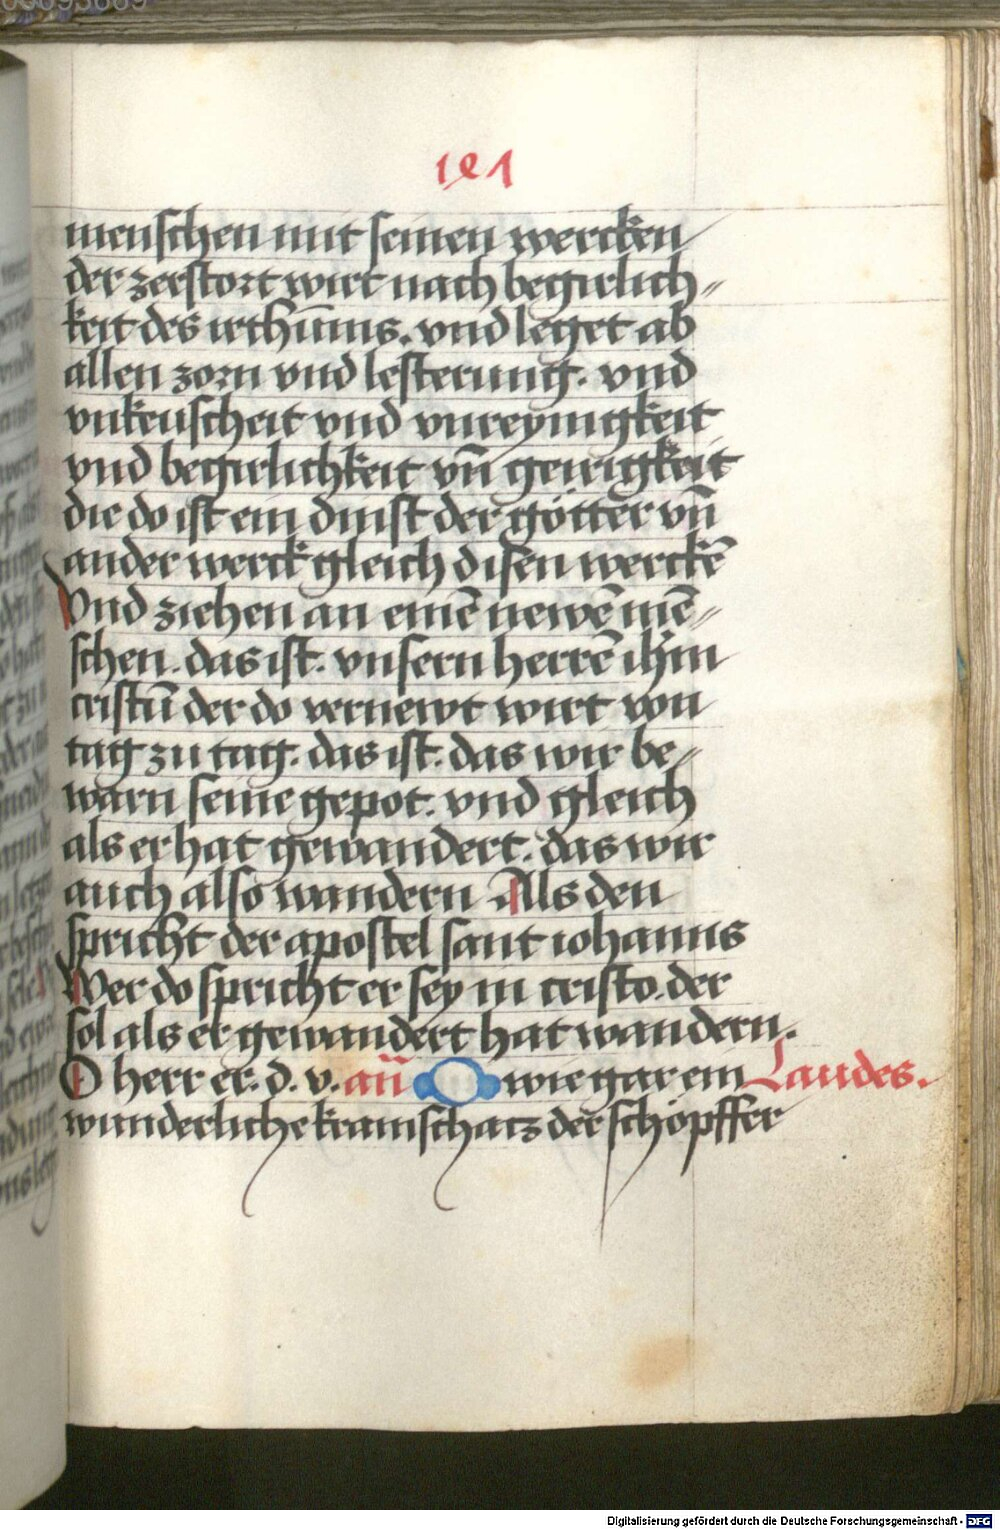 191
menschen mit seinen wercken
der zerstort wirt nach begirlich-
keit des irthūms. vnd leget ab
allen zorn vnd lesterung. vnd
vnkeuscheit vnd vnreynigkeit
vnd begirlichkeit vn̄ geitigkeit
die do ist ein dinst der götter vn̄
ander werck gleich disen werckē
Vnd ziehen an einē newē mē-
schen. das ist. vnsern herrē ihm
cristū der do vernewt wirt von
tag zu tag. das ist. das wir be-
warn seine gepot. vnd gleich
als er hat gewandert. das wir
auch also wandern Als den
spricht der apostel sant iohannis
Wer do spricht er sey in cristo. der
sol als er gewandert hat wandern.
O herr er. d. v. an̄ O wie gar ein Laudes.
wunderliche kramschatz der schöpffer
Digitalisierung gefördert durch die Deutsche Forschungsgemeinschaft - DFG